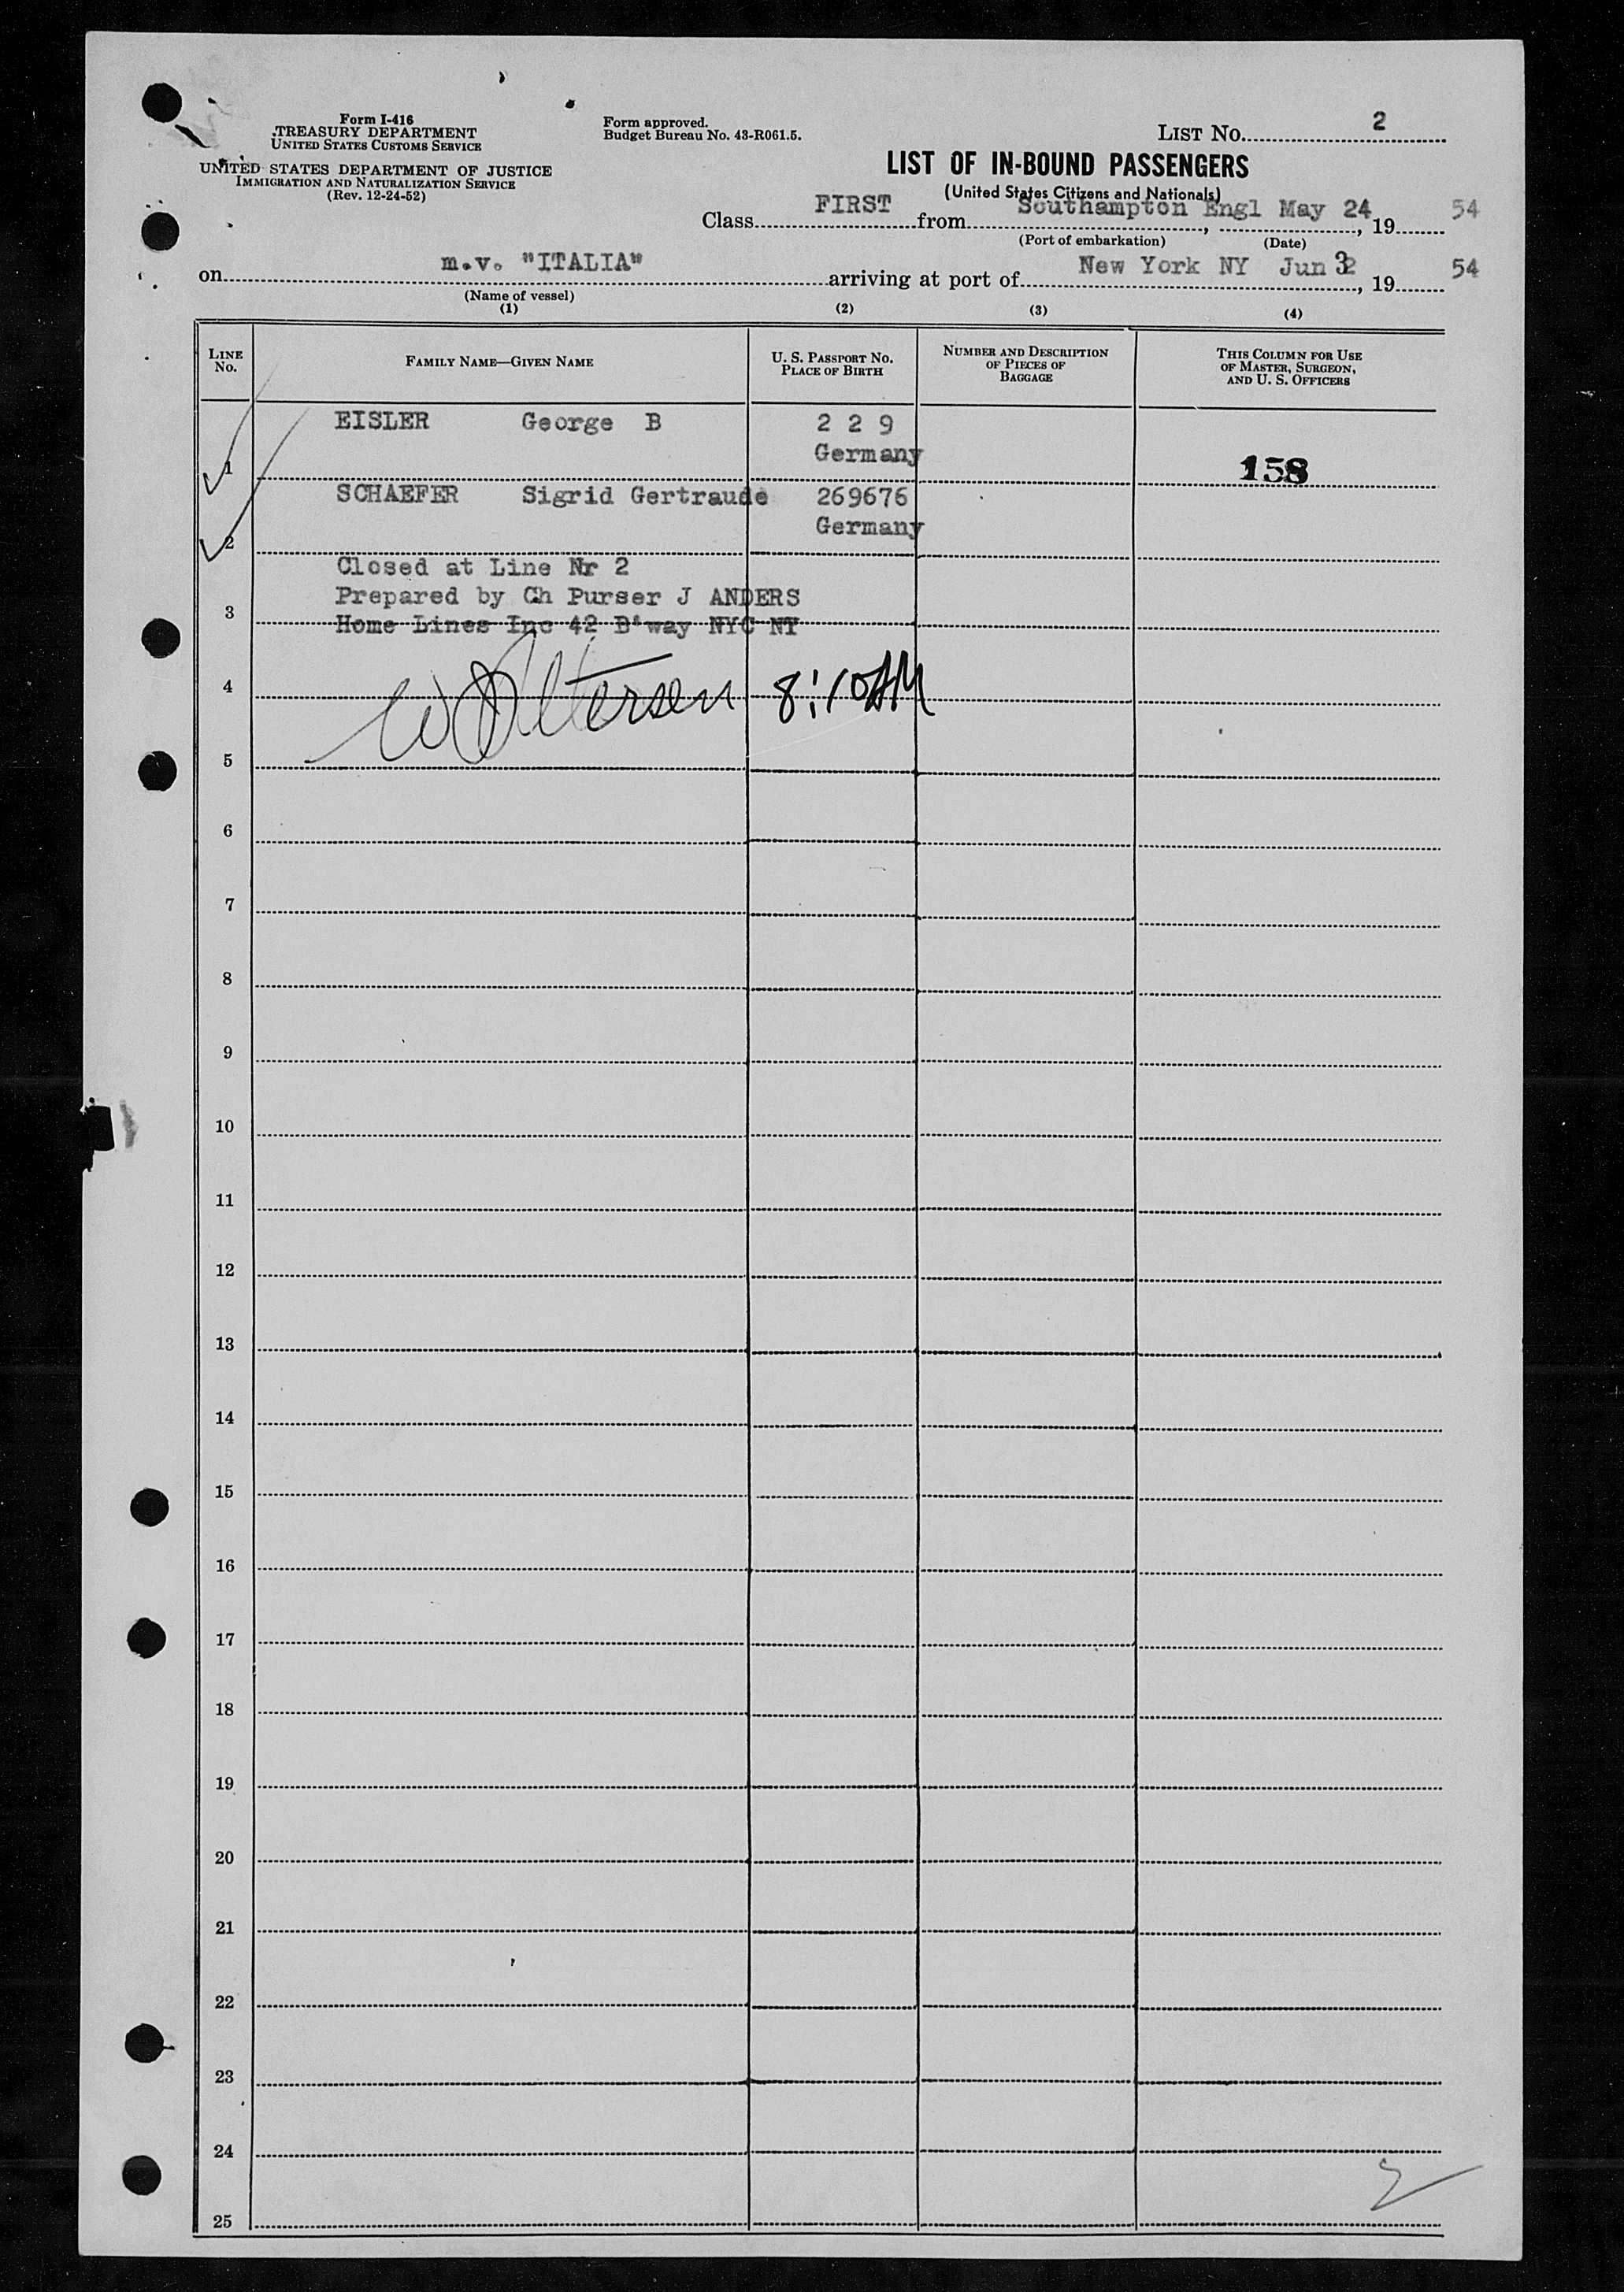 Form I-416
TREASURY DEPARTMENT
UNITED STATES CUSTOMS SERVICE
UNITED STATES DEPARTMENT OF JUSTICE
IMMIGRATION AND NATURALIZATION SERVICE
(Rev. 12-24-52)
Form approved.
Budget Bureau No. 43-R061.5.
LIST No. 2
LIST OF IN-BOUND PASSENGERS
(United States Citizens and Nationals)
Class FIRST from Southampton Engl, May 24, 19 54
(Port of embarkation) (Date)
on m.v. "ITALIA" arriving at port of New York NY Jun 3, 19 54
(Name of vessel)
(1) (2) (3) (4)
LINE No. FAMILY NAME—GIVEN NAME U. S. PASSPORT No. PLACE OF BIRTH NUMBER AND DESCRIPTION OF PIECES OF BAGGAGE THIS COLUMN FOR USE OF MASTER, SURGEON, AND U. S. OFFICERS
EISLER George B 2 2 9
1 Germany 158
SCHAEFER Sigrid Gertraude 269676
2 Germany
Closed at Line Nr 2
Prepared by Ch Purser J ANDERS
3 Home Lines Inc 42 B'way NYC NY
4 8:10 AM
5
6
7
8
9
10
11
12
13
14
15
16
17
18
19
20
21
22
23
24
2
25